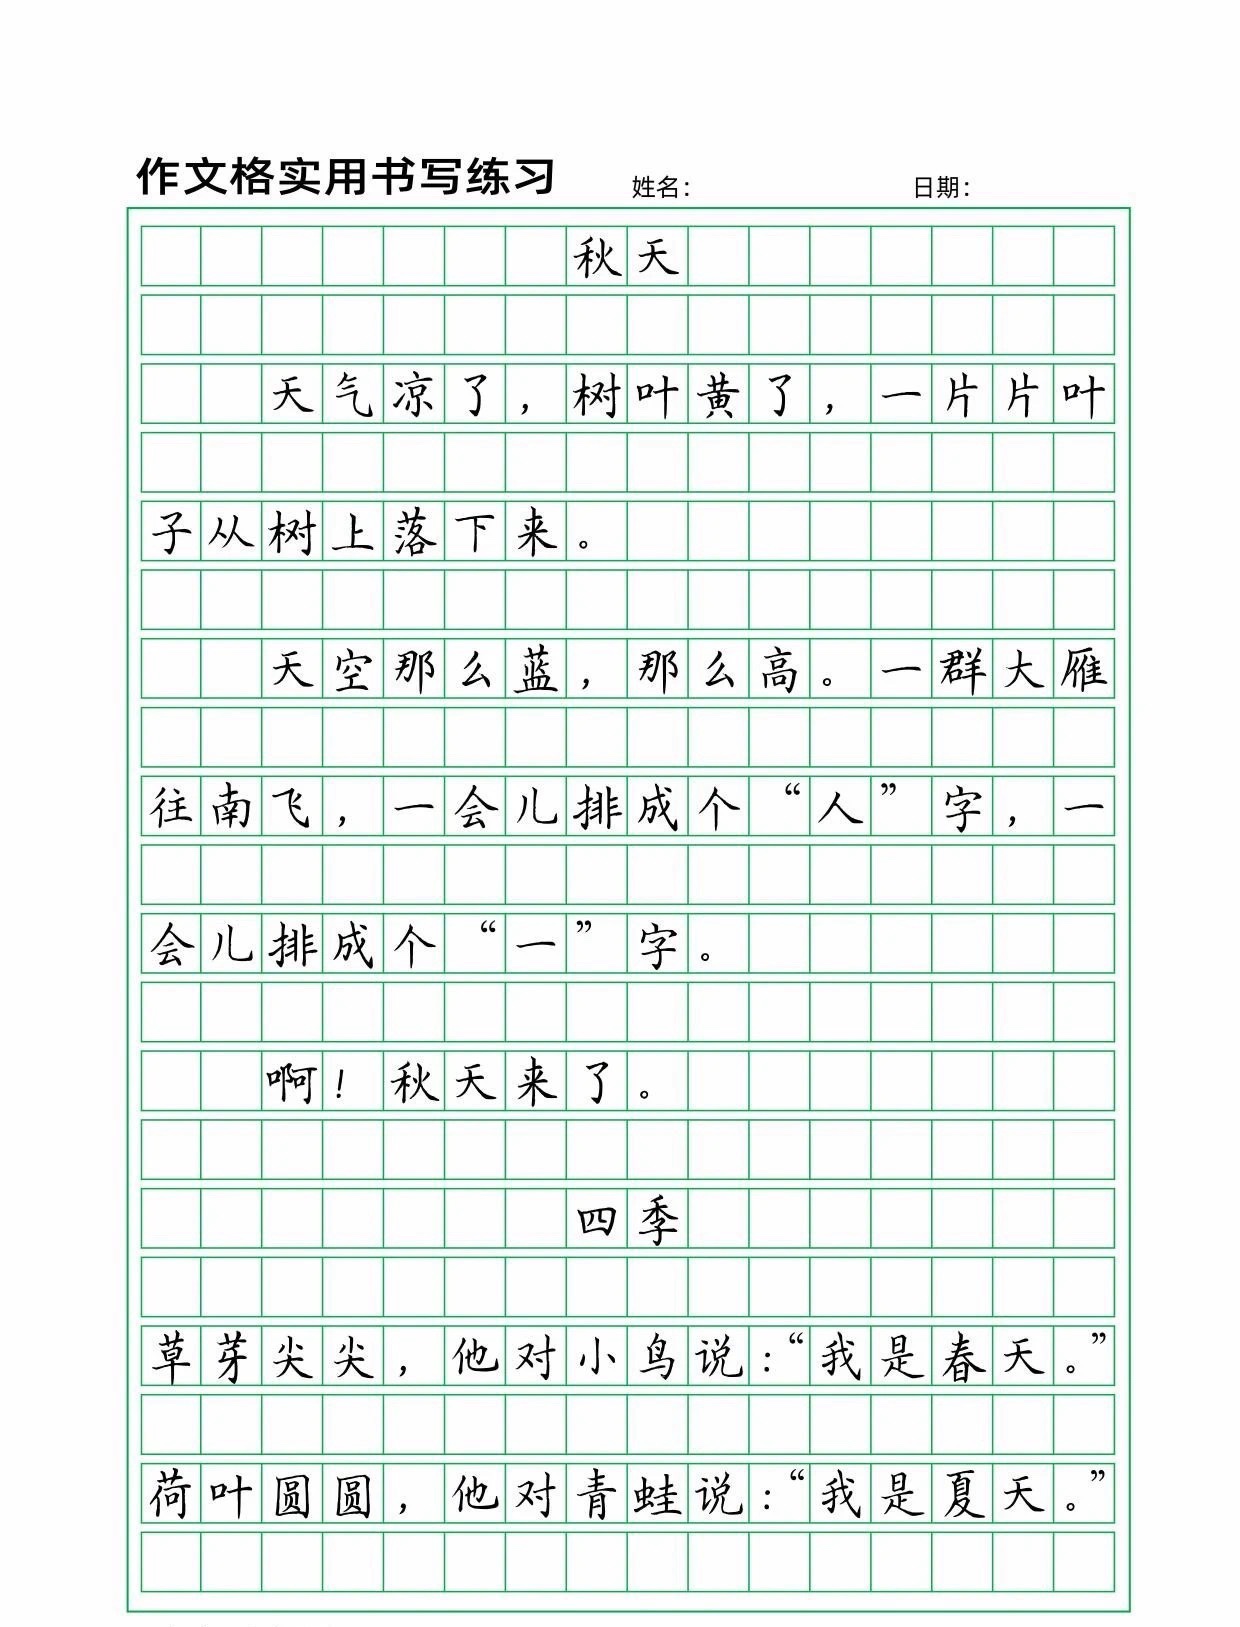 作文格实用书写练习 姓名： 日期：
秋天
天气凉了，树叶黄了，一片片叶
子从树上落下来。
天空那么蓝，那么高。一群大雁
往南飞，一会儿排成个“人”字，一
会儿排成个“一”字。
啊！秋天来了。
四季
草芽尖尖，他对小鸟说：“我是春天。”
荷叶圆圆，他对青蛙说：“我是夏天。”